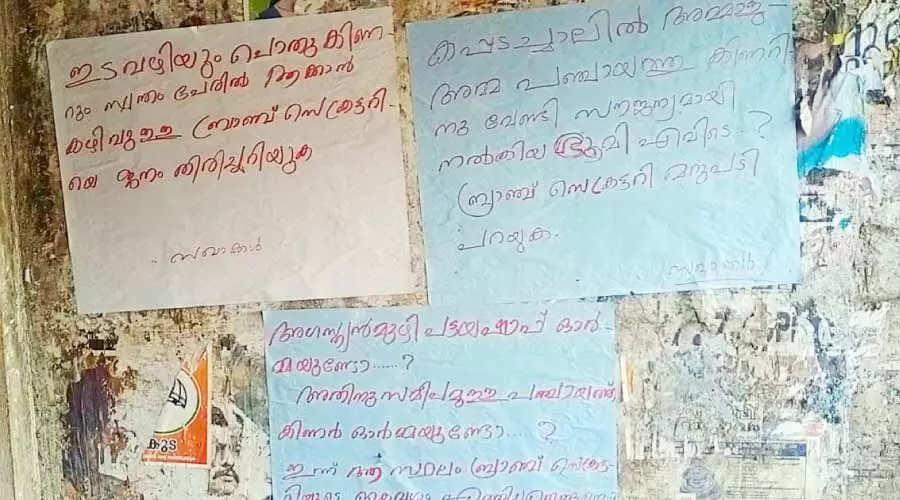 ഇടവഴിയും പൊതു കിണ-
റും സ്വന്തം പേരിൽ ആക്കാൻ
കഴിവുള്ള ബ്രാഞ്ച് സെക്രട്ടറി-
യെ ജനം തിരിച്ചറിയുക
സഖാക്കൾ
കപ്പടച്ചാലിൽ അമ്മാളു-
അമ്മ പഞ്ചായത്തു കിണറി-
നു വേണ്ടി സൗജന്യമായി
നൽകിയ ഭൂമി എവിടെ..?
ബ്രാഞ്ച് സെക്രട്ടറി മറുപടി
പറയുക.
സഖാക്കൾ
അഗസ്ത്യൻമുഴി പട്ടയഷാപ്പ് ഓർ-
മ്മയുണ്ടോ......?
അതിനു സമീപമുള്ള പഞ്ചായത്ത്
കിണർ ഓർമ്മയുണ്ടോ... ?
ഇന്ന് ആ സ്ഥലം ബ്രാഞ്ച് സെക്രട്ട-
റിയുടെ
കുട